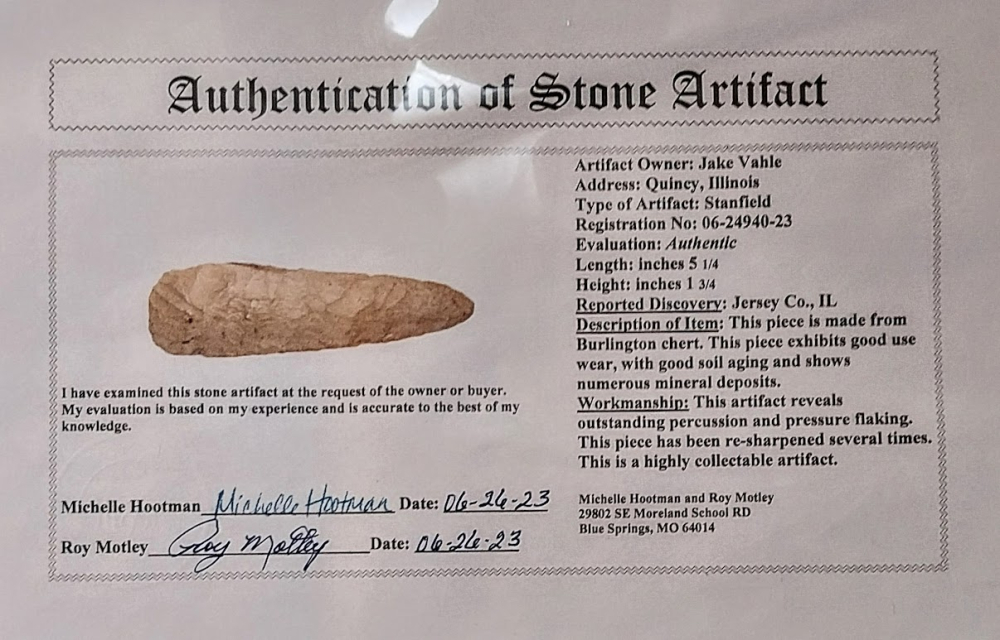 Authentication of Stone Artifact
Artifact Owner: Jake Vahle
Address: Quincy, Illinois
Type of Artifact: Stanfield
Registration No: 06-24940-23
Evaluation: Authentic
Length: inches 5 1/4
Height: inches 1 3/4
Reported Discovery: Jersey Co., IL
Description of Item: This piece is made from
Burlington chert. This piece exhibits good use
wear, with good soil aging and shows
numerous mineral deposits.
Workmanship: This artifact reveals
outstanding percussion and pressure flaking.
This piece has been re-sharpened several times.
This is a highly collectable artifact.
I have examined this stone artifact at the request of the owner or buyer.
My evaluation is based on my experience and is accurate to the best of my
knowledge.
Michelle Hootman Michelle Hootman Date: 06-26-23
Roy Motley Roy Motley Date: 06-26-23
Michelle Hootman and Roy Motley
29802 SE Moreland School RD
Blue Springs, MO 64014